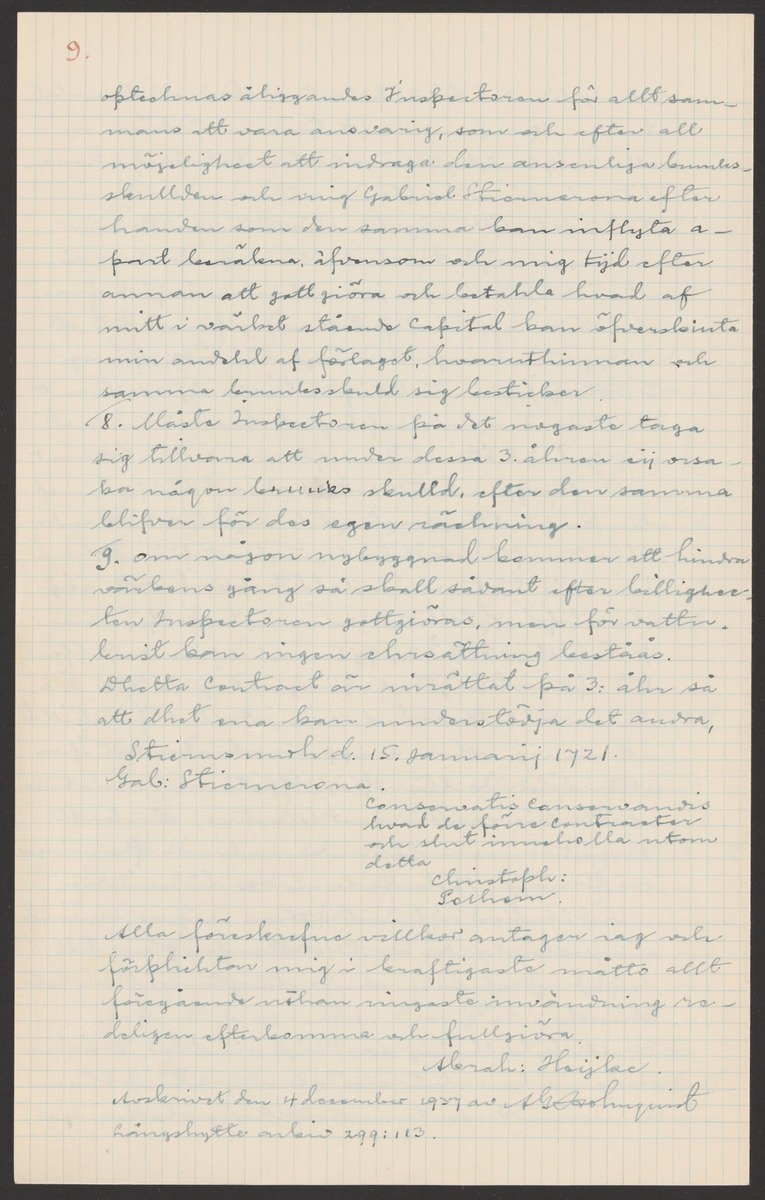 9.
optechnas åliggandes Inspectoren för allt sam-
mans att vara ansvarig, som och efter all
möjeligheet att indraga den ansenliga bruuks-
skullden och mig Gabriel Stiernerona efter
handen som den samma kan inflyta a-
part beräkna, äfvensom och mig tijd efter
annan att gott giöra och betahla hvad af
mitt i värket stående Capital kan öfverskiuta
min andehl af förlaget, hvaruthinnan och
samma bruuksskuld sig besticker.
8. Måste Inspectoren på det nogaste taga
sig tillvara att under dessa 3. åhren eij orsa-
ka någon bruuks skulld, efter den samma
blifver för des egen räckning.
9. om någon nybyggnad kommer att hindra
värkens gång så skall sådant efter billighee-
ten Inspectoren gottgiöras, men för vattu-
brist kan ingen ehrsättning beståås.
Dhetta Contract är inrättat på 3: åhr så
att dhet ena kan understödja det andra,
Stiernsundh d. 15. Januarij 1721.
Gab: Stiernerona.
Conservatis Conservandis
hvad de förre Contracter
och slut inneholla utom
detta
Christoph:
Polhem.
Alla föreskrefne villkor antager iag och
förplichtar mig i kraftigaste måtto allt
föregående uthan ringaste invändning re-
deligen efterkomma och fullgiöra.
Abrah: Heijke.
Avskrivet den 4 december 1937 av
Långshytte arkiv 299:113.